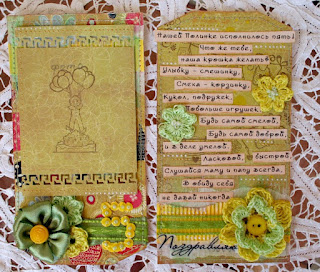 Нашей Полинке исполнилось пять!
Что же тебе,
наша крошка желать?
Улыбку - смешинку,
Смеха - корзинку,
Кукол, подружек,
Побольше игрушек.
Будь самой смелой,
Будь самой доброй,
и в деле умелой.
Ласковой, быстрой,
Слушайся маму и папу всегда,
В обиду себя
не давай никогда
Поздравляю